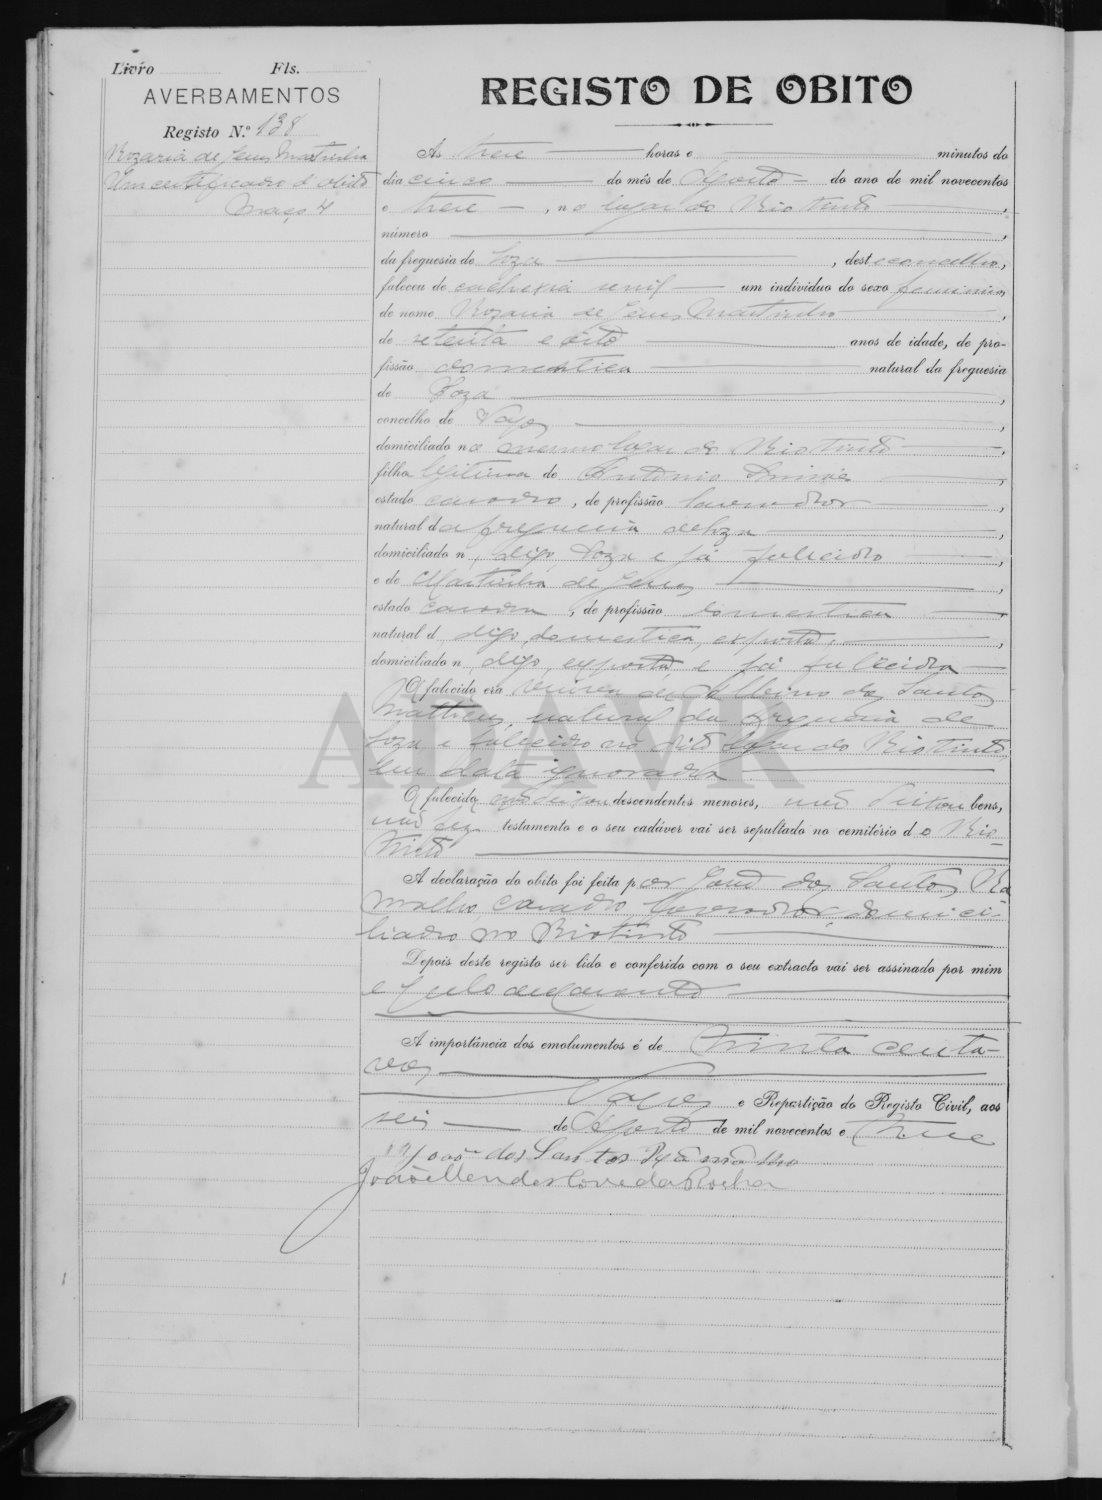 Livro Fls.
AVERBAMENTOS
Registo N.º 138
Rozaria de Jesus Martinha
Um certificado d'obito
Maço 4
REGISTO DE OBITO
Ás treze horas e minutos do
dia cinco do mês de Agosto do ano de mil novecentos
e treze, no lugar do Rio Tinto,
número ,
da freguesia de Soza, deste concelho,
faleceu de cachexia senil um individuo do sexo feminino
de nome Rozaria de Jesus Martinha,
de setenta e oito anos de idade, de pro-
fissão domestica natural da freguesia
de Soza,
concelho de Vagos,
domiciliado no mesmo lugar do Rio tinto,
filha legitima de Antonio,
estado casado, de profissão lavrador,
natural da freguesia de Soza,
domiciliado n, digo, Soza e já falecido,
e de Martinha de Jesus,
estado casada, de profissão domestica
natural d digo, domestica, exposta,,
domiciliado n, digo, exposta, e já falecida
O falecido era viuva de Albino dos Santos
Matheus, natural da freguesia de
Soza e falecido no dito lugar do Rio tinto,
em data ignorada
O falecido não deixou descendentes menores, não deixou bens,
não fez testamento e o seu cadáver vai ser sepultado no cemitério do Rio
Tinto
A declaração do obito foi feita por João dos Santos Ra
malho, casado, lavrador, domici-
liado no Rio tinto
Depois deste registo ser lido e conferido com o seu extracto vai ser assinado por mim
e pelo declarante
A importância dos emolumentos é de Trinta centa-
vos,
Vagos e Repartição do Registo Civil, aos
seis de Agosto de mil novecentos e treze
João dos Santos
João Mendes Corre da Rocha
ADAVR